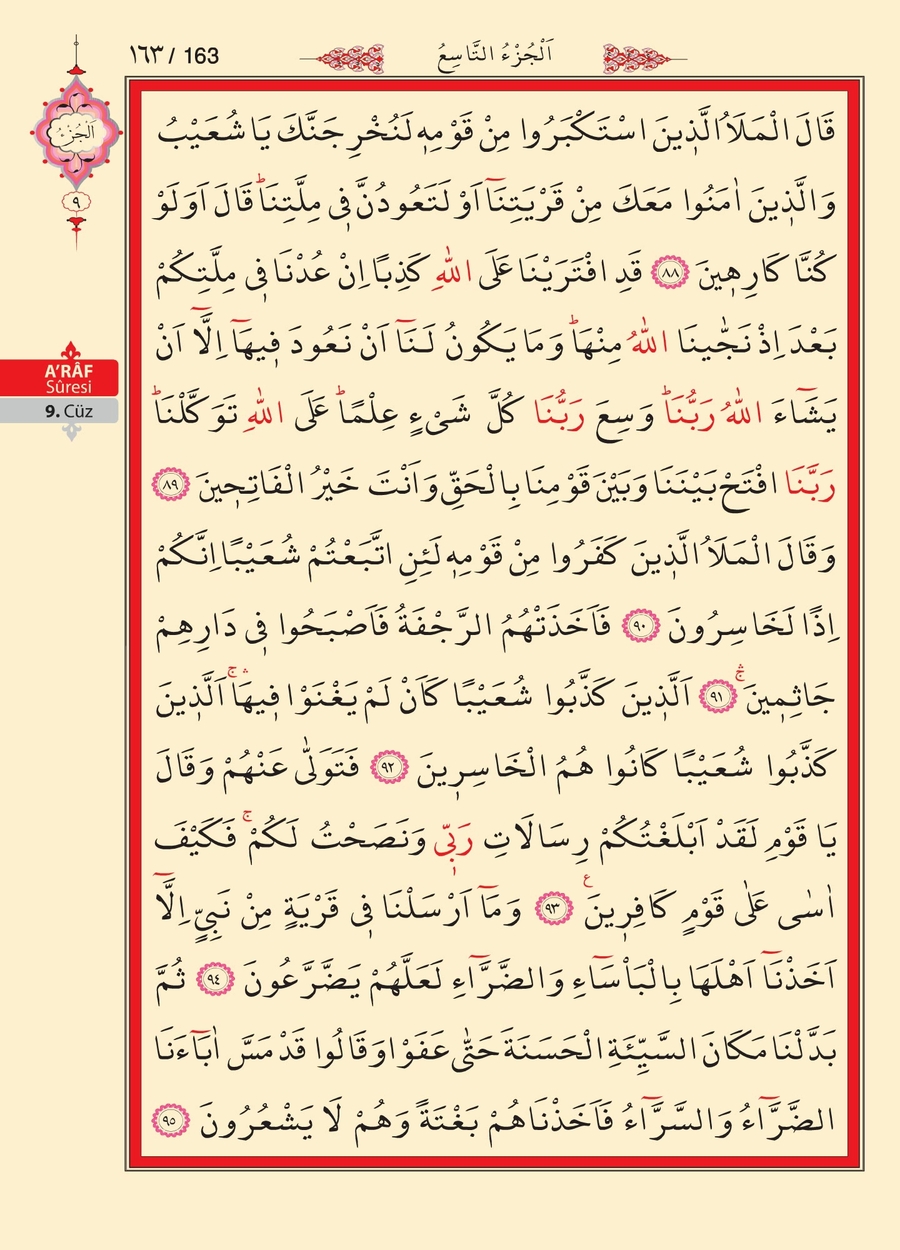 ١٦٣ / 163
اَلْجُزْءُ التَّاسِعُ
اَلْجُزْءُ
٩
A'RÂF
Sûresi
9. Cüz
قَالَ الْمَلَاُ الَّذ۪ينَ اسْتَكْبَرُوا مِنْ قَوْمِه۪ لَنُخْرِجَنَّكَ يَا شُعَيْبُ
وَالَّذ۪ينَ اٰمَنُوا مَعَكَ مِنْ قَرْيَتِنَٓا اَوْ لَتَعُودُنَّ ف۪ي مِلَّتِنَاۜ قَالَ اَوَلَوْ
كُنَّا كَارِه۪ينَ ﴿٨٨﴾ قَدِ افْتَرَيْنَا عَلَى اللّٰهِ كَذِبًا اِنْ عُدْنَا ف۪ي مِلَّتِكُمْ
بَعْدَ اِذْ نَجّٰينَا اللّٰهُ مِنْهَاۜ وَمَا يَكُونُ لَنَٓا اَنْ نَعُودَ ف۪يهَٓا اِلَّٓا اَنْ
يَشَٓاءَ اللّٰهُ رَبُّنَاۜ وَسِعَ رَبُّنَا كُلَّ شَيْءٍ عِلْمًاۜ عَلَى اللّٰهِ تَوَكَّلْنَاۜ
رَبَّنَا افْتَحْ بَيْنَنَا وَبَيْنَ قَوْمِنَا بِالْحَقِّ وَاَنْتَ خَيْرُ الْفَاتِح۪ينَ ﴿٨٩﴾
وَقَالَ الْمَلَاُ الَّذ۪ينَ كَفَرُوا مِنْ قَوْمِه۪ لَئِنِ اتَّبَعْتُمْ شُعَيْبًا اِنَّكُمْ
اِذًا لَخَاسِرُونَ ﴿٩٠﴾ فَاَخَذَتْهُمُ الرَّجْفَةُ فَاَصْبَحُوا ف۪ي دَارِهِمْ
جَاثِم۪ينَۚۛ ﴿٩١﴾ اَلَّذ۪ينَ كَذَّبُوا شُعَيْبًا كَاَنْ لَمْ يَغْنَوْا ف۪يهَاۚۛ اَلَّذ۪ينَ
كَذَّبُوا شُعَيْبًا كَانُوا هُمُ الْخَاسِر۪ينَ ﴿٩٢﴾ فَتَوَلّٰى عَنْهُمْ وَقَالَ
يَا قَوْمِ لَقَدْ اَبْلَغْتُكُمْ رِسَالَاتِ رَبّ۪ي وَنَصَحْتُ لَكُمْۚ فَكَيْفَ
اٰسٰى عَلٰى قَوْمٍ كَافِر۪ينَ۟ ﴿٩٣﴾ وَمَٓا اَرْسَلْنَا ف۪ي قَرْيَةٍ مِنْ نَبِيٍّ اِلَّٓا
اَخَذْنَٓا اَهْلَهَا بِالْبَاْسَٓاءِ وَالضَّرَّٓاءِ لَعَلَّهُمْ يَضَّرَّعُونَ ﴿٩٤﴾ ثُمَّ
بَدَّلْنَا مَكَانَ السَّيِّئَةِ الْحَسَنَةَ حَتّٰى عَفَوْا وَقَالُوا قَدْ مَسَّ اٰبَٓاءَنَا
الضَّرَّٓاءُ وَالسَّرَّٓاءُ فَاَخَذْنَاهُمْ بَغْتَةً وَهُمْ لَا يَشْعُرُونَ ﴿٩٥﴾